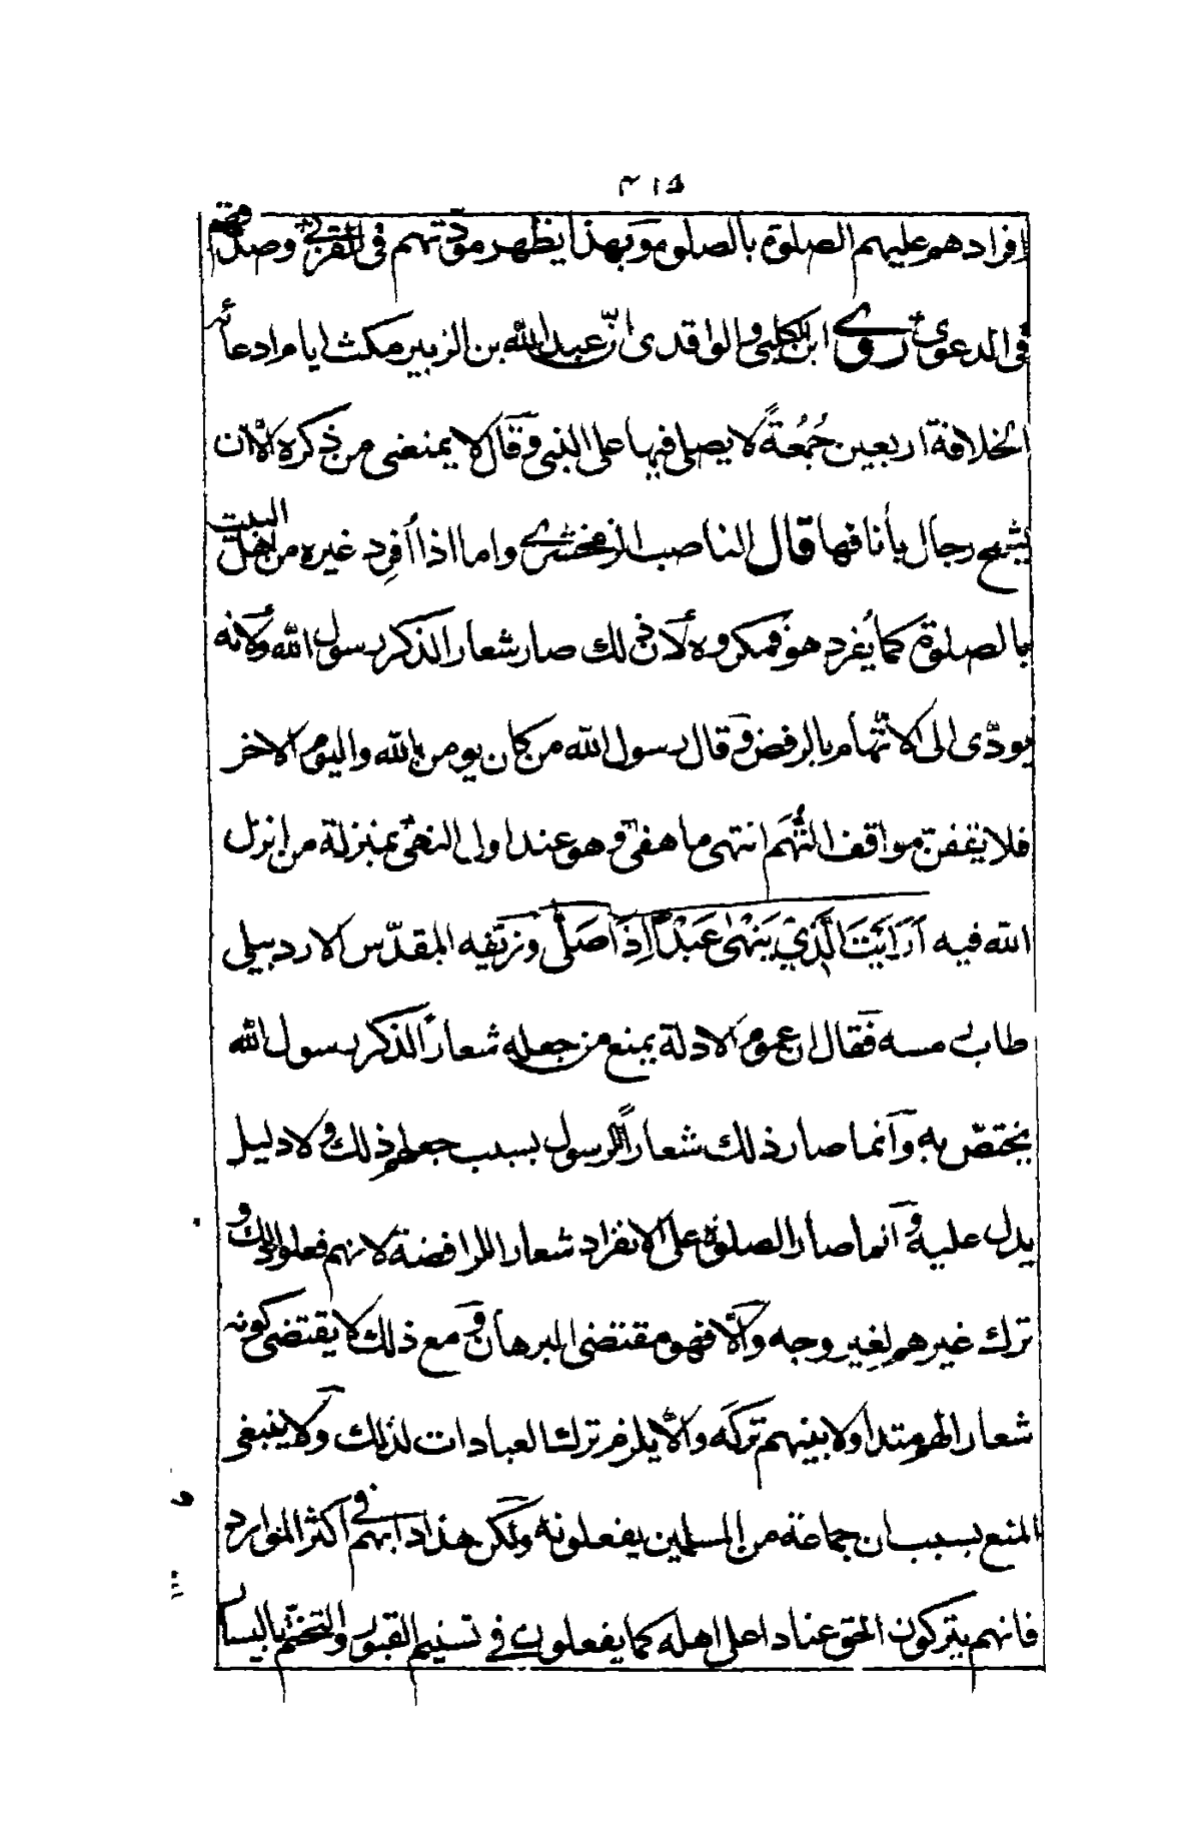 ٤١٥
افرادهم عليهم الصلوة بالصلوة وبهذا يظهر مودّتهم فى القربى وصدقهم
فى الدعوى روى ابن الكلبى والواقدى انّ عبد الله بن الزبير مكث ايام ادعائه
الخلافة اربعين جُمُعةً لا يصلى فيها على النبى وقال لا يمنعنى من ذكره الّا ان
يشمخ رجال بأنافها قال الناصب الزمخشرى واما اذا اُفرِد غيره من اهل البيت
بالصلوة كما يُفرد هو فمكروه لأن ذلك صار شعار الذكر رسول الله ولأنه
يودّى الى الاتّهام بالرفض وقال رسول الله من كان يومن بالله واليوم الاخر
فلا يقفنّ مواقف التُّهَم انتهى ما هفى وهو عند اولى النهى بمنزلة من انزل
الله فيه اَرَاَيْتَ الَّذِيْ يَنْهٰى عَبْدًا اِذَا صَلّٰى وزيّفه المقدّس الاردبيلى
طاب رمسه فقال ان عموم الادلة يمنع من جعله شعاراً لذكر رسول الله
يختصّ به وانما صار ذلك شعاراً للرسول بسبب جعلهم ذلك ولا دليل
يدل عليه وانما صار الصلوة على الانفراد شعار اللرافضة لانهم فعلوا ذلك و
ترك غيرهم لغير وجه والّا فهو مقتضى البرهان ومع ذلك لا يقتضى كونه
شعار الهم متداولا بينهم تركَه والّا يلزم ترك العبادات لذلك ولا ينبغى
المنع بسبب ان جماعة من المسلمين يفعلونه ولكن هذا دابهم فى اكثر الموارد
فانهم يتركون الحق عنادا على اهله كما يفعلون فى تسنيم القبور والتختّم باليسار